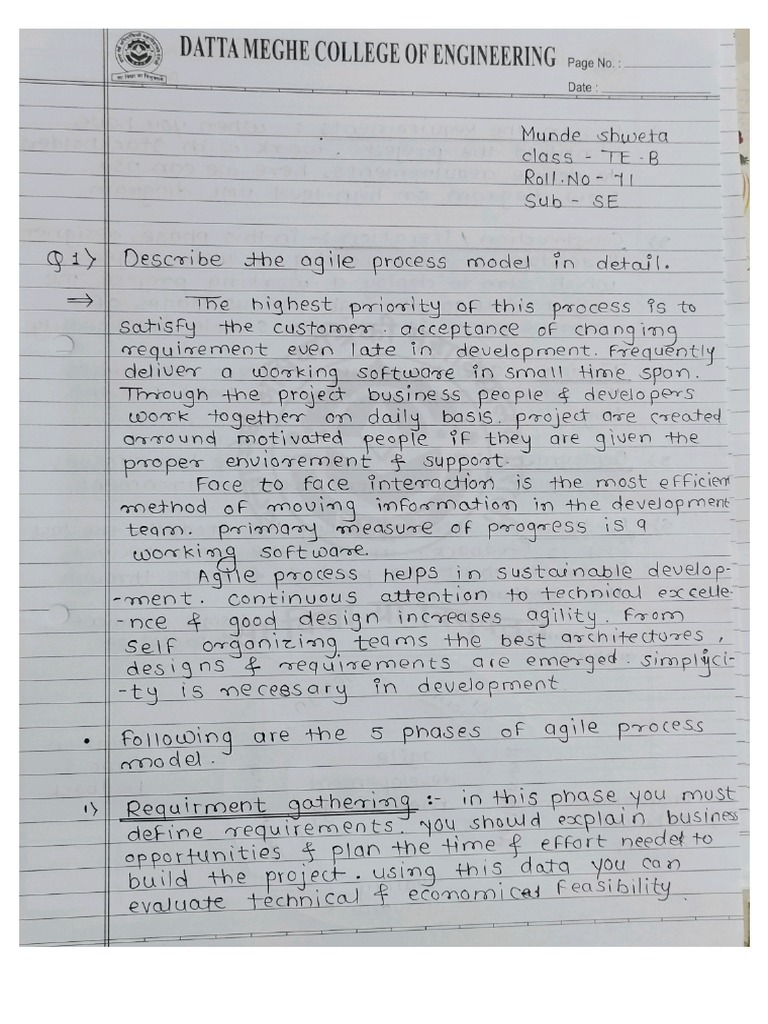 DATTA MEGHE COLLEGE OF ENGINEERING
Page No. :
Date :
Munde shweta
class - TE - B
Roll.No - 71
Sub - SE
Q 1) Describe the agile process model in detail.
⇒ The highest priority of this process is to
satisfy the customer. acceptance of changing
requirement even late in development. Frequently
deliver a working software in small time span.
Through the project business people & developers
work together on daily basis. project are created
arround motivated people if they are given the
proper enviorement & support.
Face to face interaction is the most efficient
method of moving information in the development
team. primary measure of progress is a
working software.
Agile process helps in sustainable develop-
-ment. continuous attention to technical excelle-
-nce & good design increases agility. From
self organizing teams the best architectures,
designs & requirements are emerged. simplici-
-ty is necessary in development
• Following are the 5 phases of agile process
model.
1) Requirment gathering :- in this phase you must
define requirements. you should explain business
opportunities & plan the time & effort needed to
build the project. using this data you can
evaluate technical & economical feasibility.